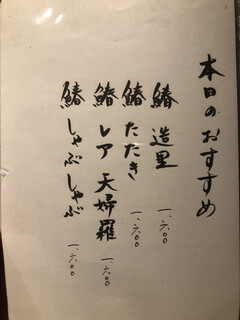 本日のおすすめ
鰆 造里 一、六〇〇
鰆 たたき 一、六〇〇
鰆 レア天婦羅 一、六〇〇
鰆 しゃぶしゃぶ 一、六〇〇